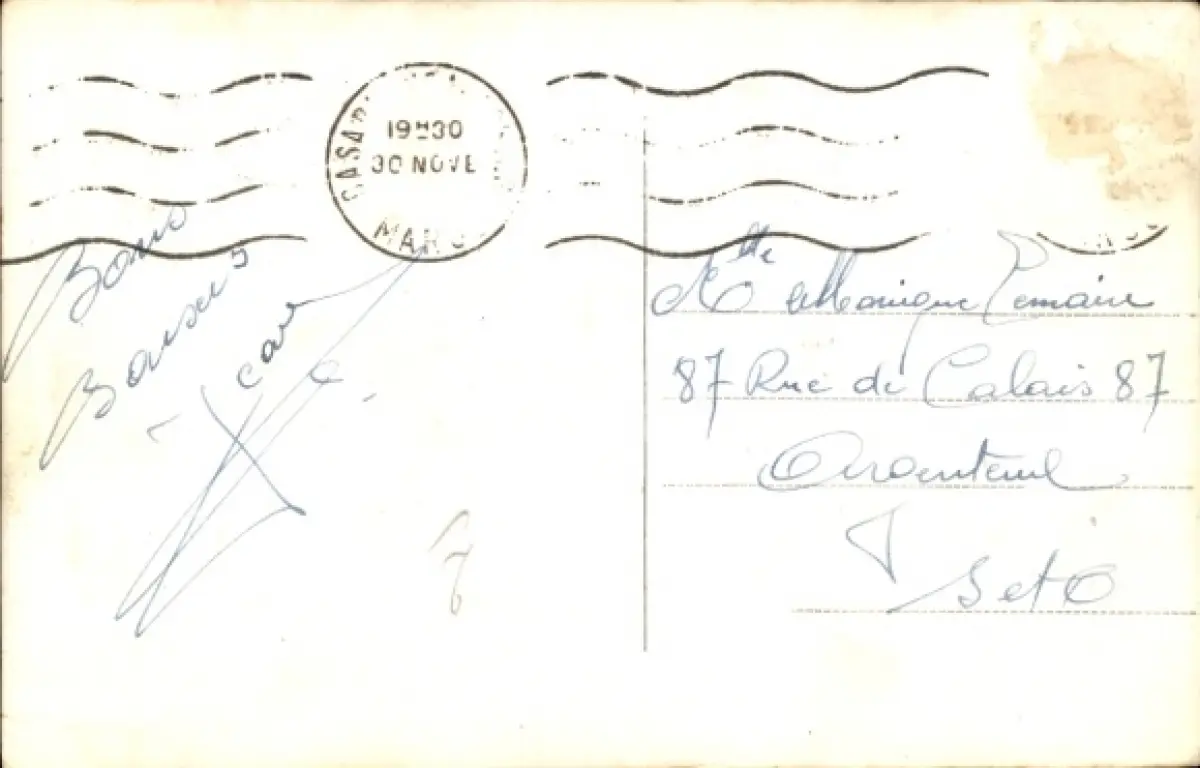 19H30
30 NOVE
MAROC
Bons
Baisers
Mlle Monique Lemaire
87 Rue de Calais 87
Argenteuil
S et O